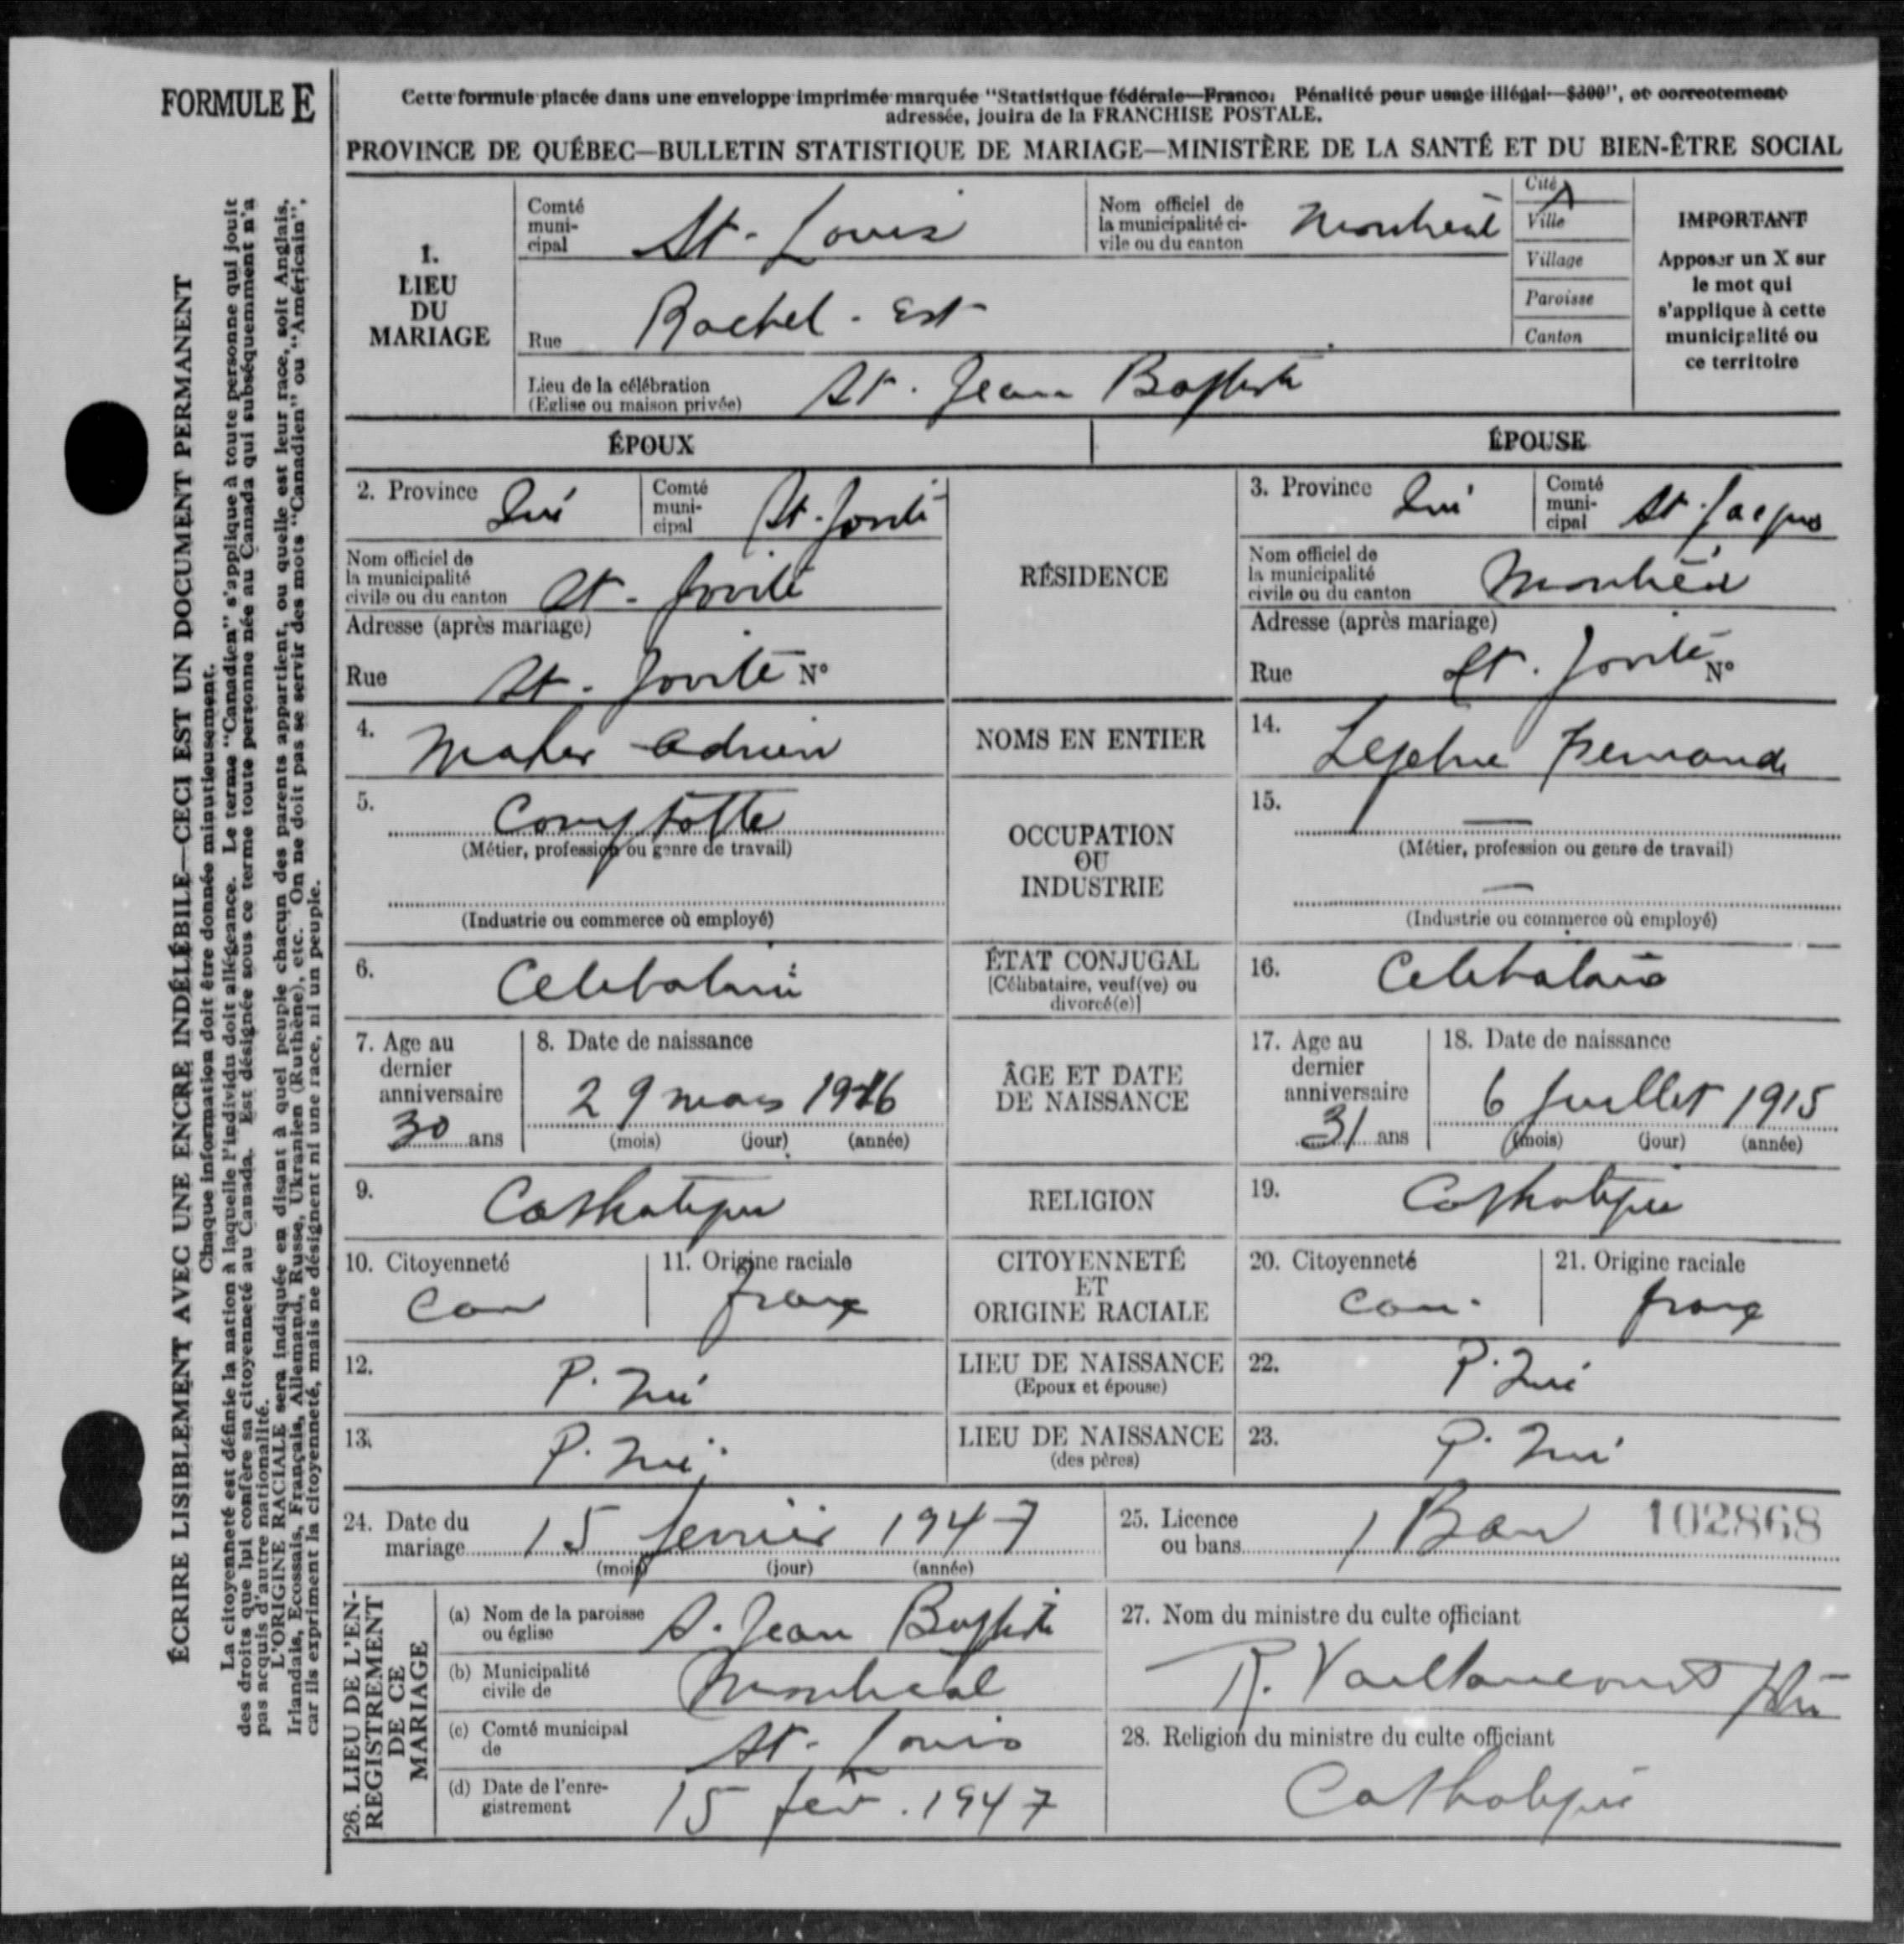 FORMULE E
Cette formule placée dans une enveloppe imprimée marquée "Statistique fédérale—Franco. Pénalité pour usage illégal—$300", et correctement
adressée, jouira de la FRANCHISE POSTALE.
PROVINCE DE QUÉBEC—BULLETIN STATISTIQUE DE MARIAGE—MINISTÈRE DE LA SANTÉ ET DU BIEN-ÊTRE SOCIAL
ÉCRIRE LISIBLEMENT AVEC UNE ENCRE INDÉLÉBILE—CECI EST UN DOCUMENT PERMANENT
Chaque information doit être donnée minutieusement.
La citoyenneté est définie la nation à laquelle l'individu doit allégeance. Le terme "Canadien" s'applique à toute personne qui jouit
des droits que lui confère sa citoyenneté au Canada. Est désignée sous ce terme toute personne née au Canada qui subséquemment n'a
pas acquis d'autre nationalité.
L'ORIGINE RACIALE sera indiquée en disant à quel peuple chacun des parents appartient, ou quelle est leur race, soit Anglais,
Irlandais, Ecossais, Français, Allemand, Russe, Ukranien (Ruthène), etc. On ne doit pas se servir des mots "Canadien" ou "Américain",
car ils expriment la citoyenneté, mais ne désignent ni une race, ni un peuple.
1.
LIEU
DU
MARIAGE
Comté
muni-
cipal St-Louis
Nom officiel de
la municipalité ci-
vile ou du canton Montréal
Cité X
Ville
Village
Paroisse
Canton
IMPORTANT
Apposer un X sur
le mot qui
s'applique à cette
municipalité ou
ce territoire
Rue Rachel - Est
Lieu de la célébration
(Eglise ou maison privée) St. Jean Baptiste
ÉPOUX
ÉPOUSE
2. Province Qué
Comté
muni-
cipal St-Jovite
RÉSIDENCE
3. Province Qué
Comté
muni-
cipal St-Jacques
Nom officiel de
la municipalité
civile ou du canton St-Jovite
Nom officiel de
la municipalité
civile ou du canton Montréal
Adresse (après mariage)
Rue St-Jovite N°
Adresse (après mariage)
Rue St. Jovite N°
4. Maher Adrien
NOMS EN ENTIER
14. Lefebvre Fernande
5. Comptable
(Métier, profession ou genre de travail)
(Industrie ou commerce où employé)
OCCUPATION
OU
INDUSTRIE
15. —
(Métier, profession ou genre de travail)
—
(Industrie ou commerce où employé)
6. Celebataire
ÉTAT CONJUGAL
[Célibataire, veuf(ve) ou
divorcé(e)]
16. Celebataire
7. Age au
dernier
anniversaire
30 ans
8. Date de naissance
29 mars 1916
(mois) (jour) (année)
ÂGE ET DATE
DE NAISSANCE
17. Age au
dernier
anniversaire
31 ans
18. Date de naissance
6 Juillet 1915
(mois) (jour) (année)
9. Catholique
RELIGION
19. Catholique
10. Citoyenneté
Can
11. Origine raciale
franç
CITOYENNETÉ
ET
ORIGINE RACIALE
20. Citoyenneté
Can.
21. Origine raciale
franç
12. P. Qué
LIEU DE NAISSANCE
(Epoux et épouse)
22. P. Qué
13. P. Qué
LIEU DE NAISSANCE
(des pères)
23. P. Qué
24. Date du
mariage 15 fevrier 1947
(mois) (jour) (année)
25. Licence
ou bans 1 Ban 102868
26. LIEU DE L'EN-
REGISTREMENT
DE CE
MARIAGE
(a) Nom de la paroisse
ou église S. Jean Baptiste
(b) Municipalité
civile de Montréal
(c) Comté municipal
de St-Louis
(d) Date de l'enre-
gistrement 15 fév. 1947
27. Nom du ministre du culte officiant
R. Vaillancourt
28. Religion du ministre du culte officiant
Catholique